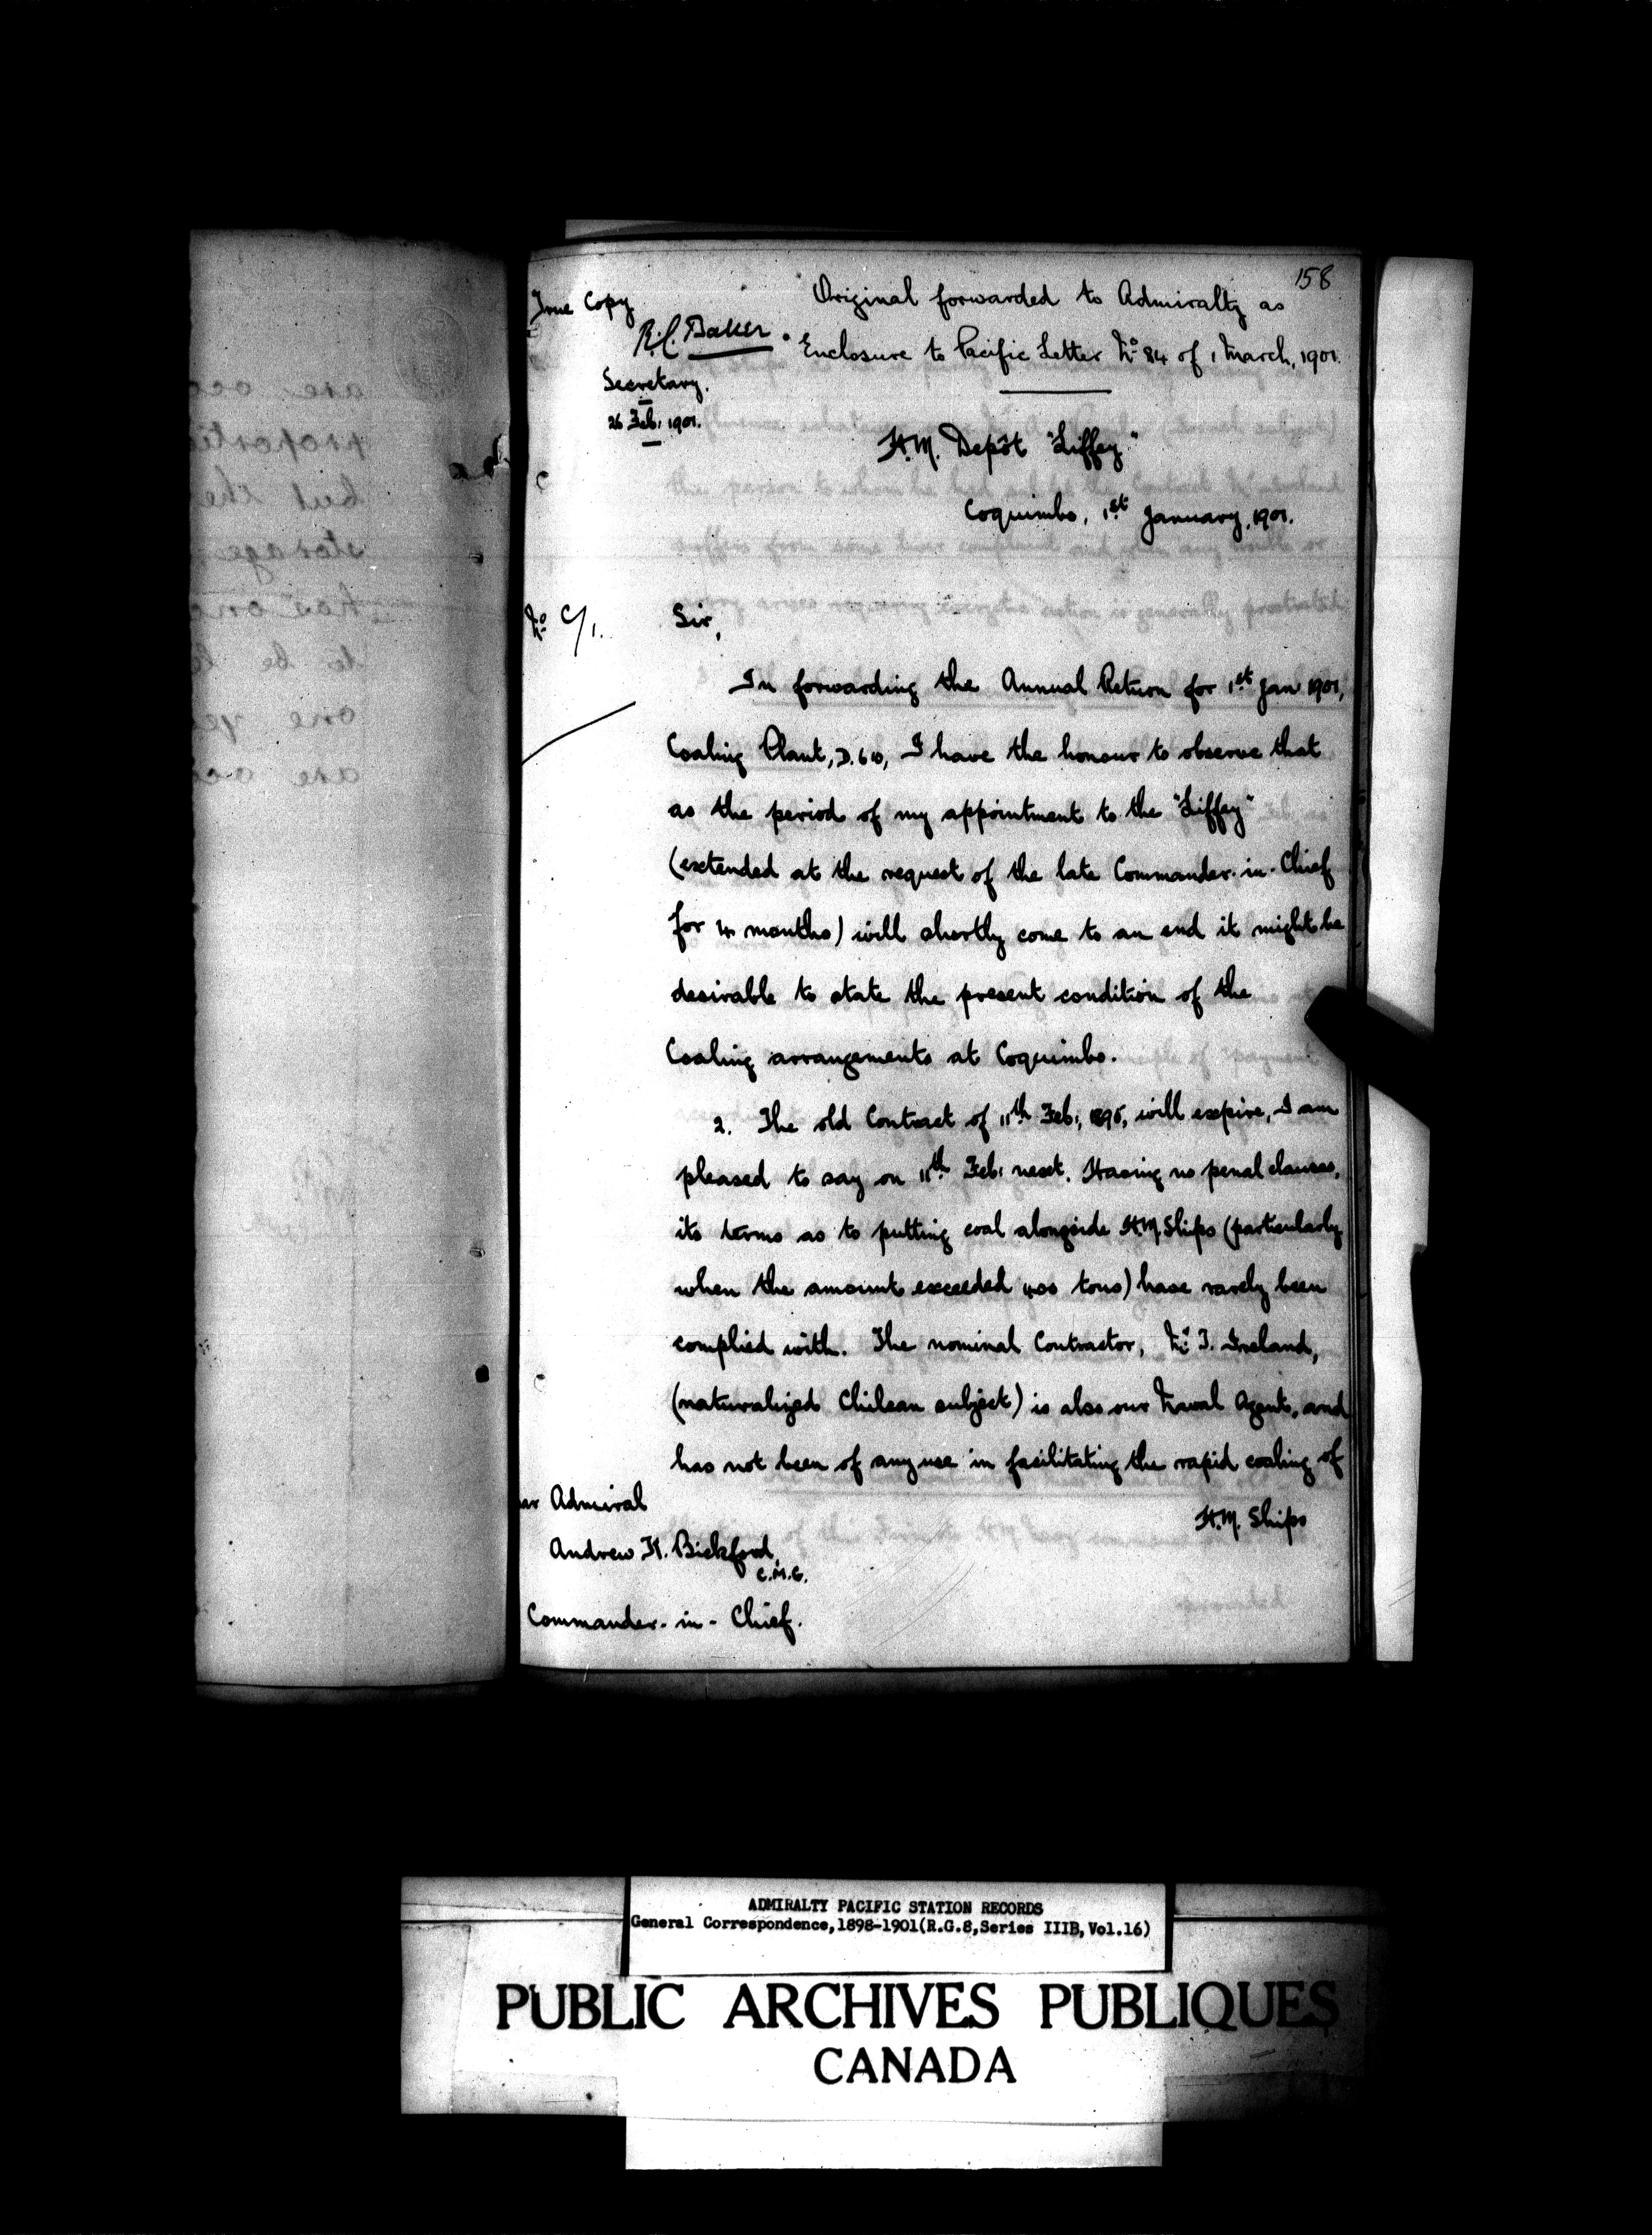 158
True Copy
R.C. Baker.
Secretary.
26 Feb: 1901.
Original forwarded to Admiralty as
Enclosure to Pacific Letter No 84 of 1 March, 1901.
H.M. Depôt "Liffey"
Coquimbo, 1st January, 1901.
No C/1.
Sir,
In forwarding the Annual Return for 1st Jan 1901,
Coaling Plant, D. 610, I have the honour to observe that
as the period of my appointment to the "Liffey"
(extended at the request of the late Commander-in-Chief
for 4 months) will shortly come to an end it might be
desirable to state the present condition of the
Coaling arrangements at Coquimbo.
2. The old Contract of 11th Feb:, will expire, I am
pleased to say on 11th Feb: next. Having no penal clauses,
its terms as to putting coal alongside H.M. Ships (particularly
when the amount exceeded 400 tons) have rarely been
complied with. The nominal Contractor, Mr J. Ireland,
(naturalized Chilean subject) is also our Naval Agent, and
has not been of any use in facilitating the rapid coaling of
H.M. Ships
ar Admiral
Andrew K. Bickford,
C.M.G.
Commander-in-Chief.
are occ
proporti
but the
storage
has one
to be l
one ye
are acc
ADMIRALTY PACIFIC STATION RECORDS
General Correspondence,1898-1901(R.G.8,Series IIIB,Vol.16)
PUBLIC ARCHIVES PUBLIQUES
CANADA